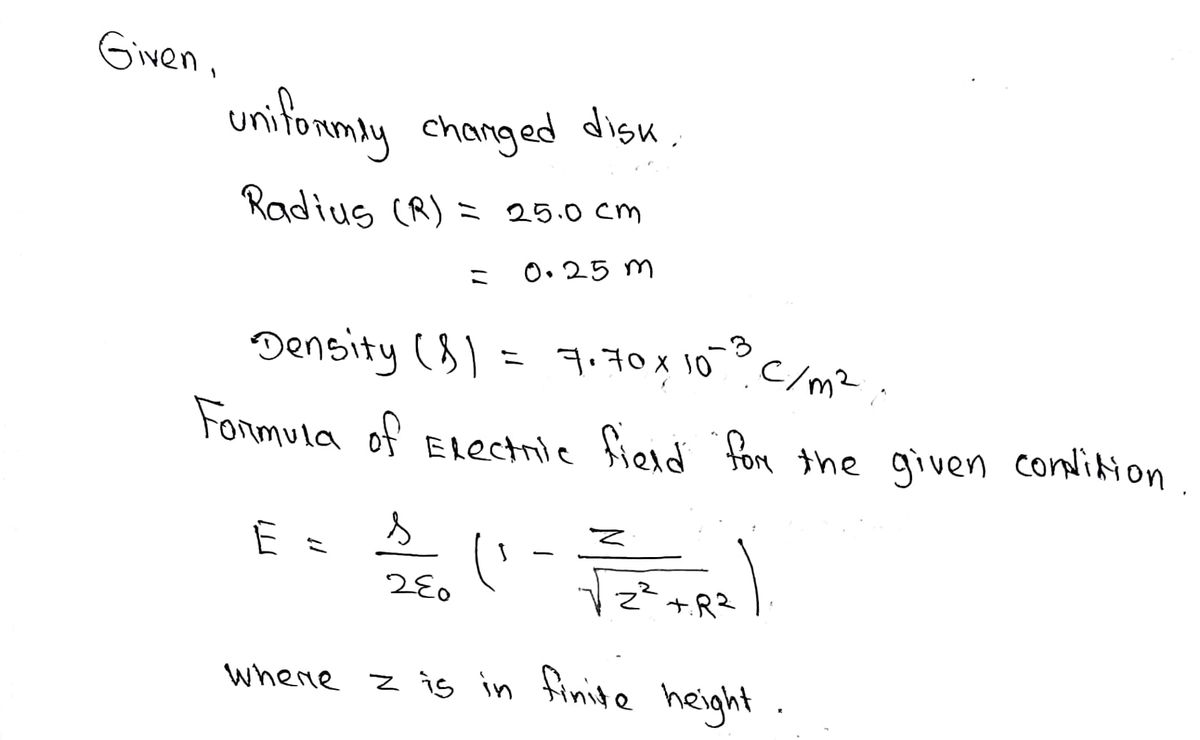 Given,
uniformly charged disk.
Radius (R) = 25.0 cm
= 0.25 m
Density (δ) = 7.70 x 10⁻³ C/m².
Formula of Electric field for the given condition.
E = δ/2ε₀ (1 - z/√(z² + R²)).
where z is in finite height.